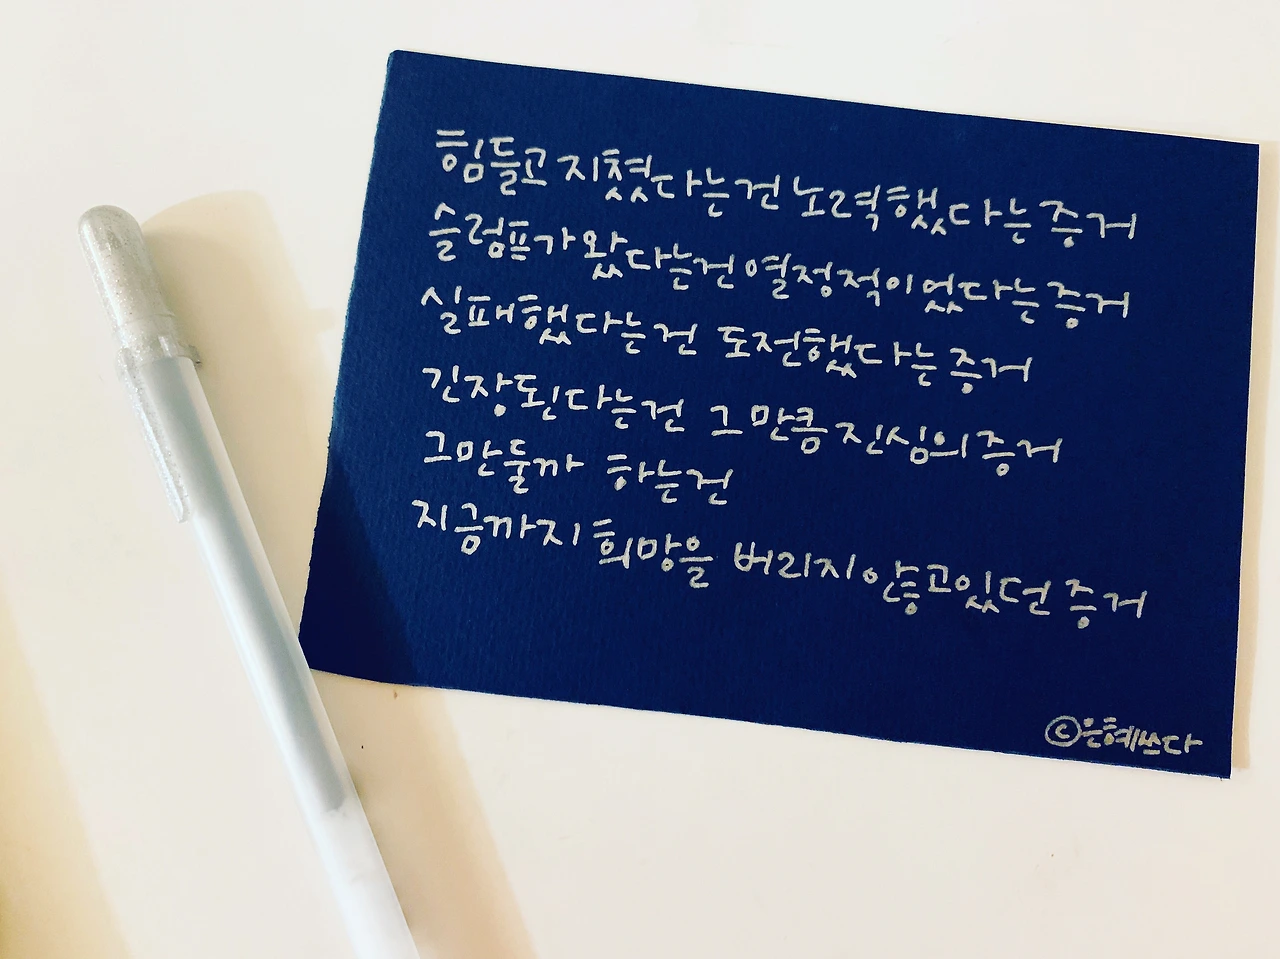 힘들고 지쳤다는건 노력했다는 증거
슬럼프가 왔다는건 열정적이었다는 증거
실패했다는건 도전했다는 증거
긴장된다는건 그만큼 진심의 증거
그만둘까 하는건
지금까지 희망을 버리지 않고있던 증거
ⓒ은혜쓰다